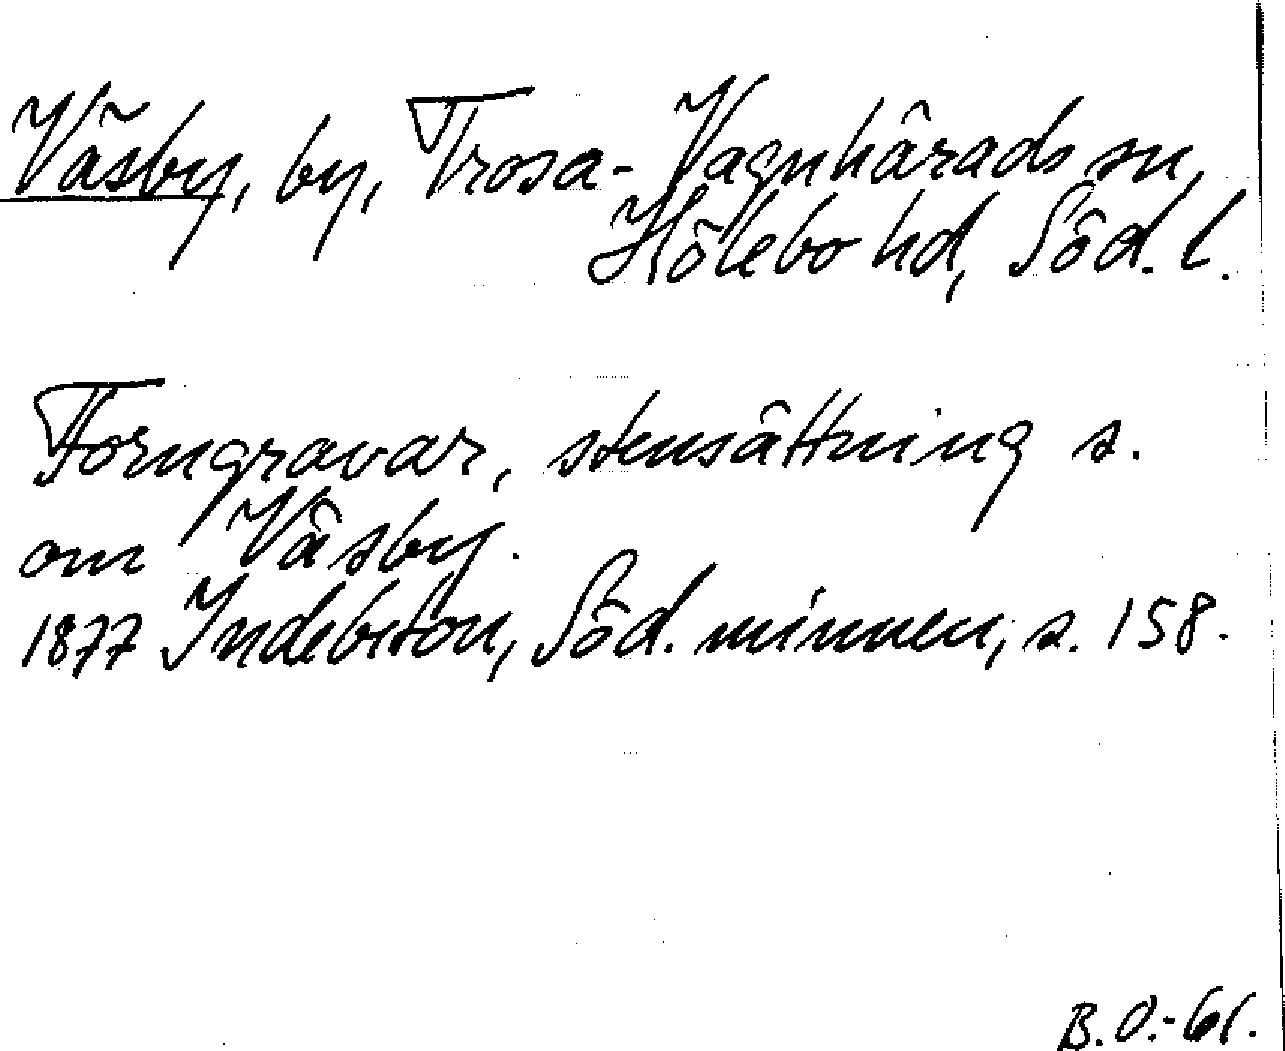 Väsby, by, Trosa-Vagnhärads sn,
Hölebo hd, Söd. l.
Forngravar, stensättning s.
om Väsby.
1877 Indebetou, Söd. minnen, s. 158.
B.O.-61.